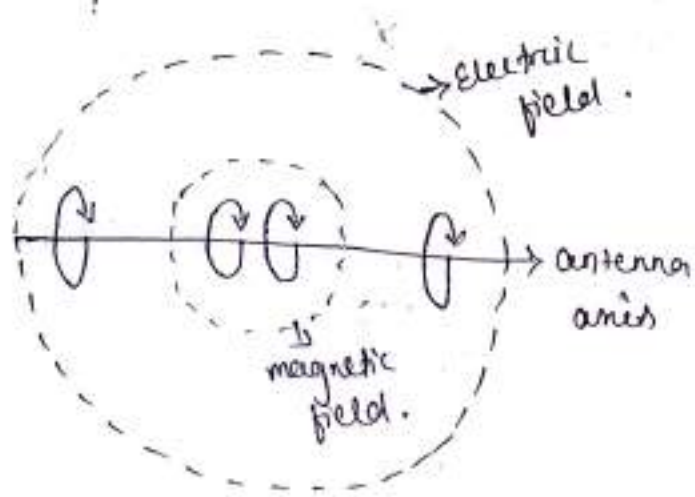 Electric
field.
antenna
axis
magnetic
field.